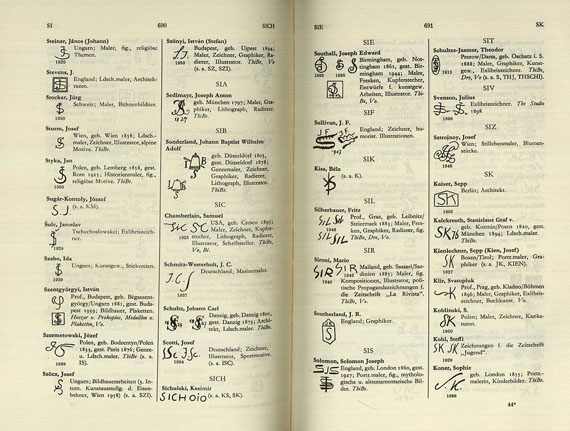 SI 690 SICH
Steiner, János (Johann)
Ungarn; Maler, fig., religiöse
Themen.
1920
Stevens, J.
England; Ldsch.maler, Architek-
turen.
Stockar, Jürg
Schweiz; Maler, Bühnenbildner.
1950
Sturm, Josef
Wien, geb. Wien 1858; Ldsch.-
maler, Zeichner, Illustrator, alpine
Motive. ThBe.
Styka, Jan
Polen, geb. Lemberg 1858, gest.
Rom 1925; Historienmaler, fig.,
religiöse Motive. ThBe.
Sugár-Kontoly, József
S. J (s. a. KSI).
Šulc, Jaroslav
Tschechoslowakei; Exlibriszeich-
ner.
Szabo, Ida
Ungarn; Kunstgew., Stickereien.
1929
Szentgyörgyi, István
Prof., Budapest, geb. Bégaszent-
györgy/Ungarn 1881, gest. Buda-
pest 1939; Bildhauer, Plaketten.
Plaketten, Va.
Szermetowski, József
Polen, geb. Bodzentyn/Polen
1833, gest. Paris 1876; Genre-
u. Ldsch.maler. ThBe. (s. a.
IS).
Szücz, Josef
Ungarn; Bildhauerarbeiten (s. In-
tern. Kunstausstellg. d. Eisen-
bahner, Wien 1958) (s. a. SZI).
Szőnyi, István (Stefan)
Budapest, geb. Ujpest 1894;
Maler, Zeichner, Graphiker, Ra-
dierer, Illustrator. ThBe, Vo
(s. a. SZ, SZI).
SIA
Sedlmayr, Joseph Anton
geb. München 1797; Maler, Gra-
phiker, Radierer. ThBe.
1827
SIB
Sonderland, Johann Baptist Wilhelm
Adolf
geb. Düsseldorf 1805,
gest. Düsseldorf 1878;
Genremaler, Zeichner,
Graphiker, Radierer,
Lithograph, Illustrator.
ThBe.
SIC
Chamberlain, Samuel
USA, geb. Cresco 1895;
Maler, Zeichner, Kupfer-
stecher, Lithograph, Radierer,
Illustrator, Schriftsteller.
Vo, Bé.
Schmitz-Westerholt, J. C.
Deutschland; Marinemaler.
J.C.S
1937
Schultz, Johann Carl
geb. Danzig 1801,
gest. Danzig 1873; Archi-
tekturmaler. ThBe.
Scotti, Josef
Deutschland; Zeichner,
Illustrator, Sportmotive.
(s. a. ISC).
SICH
Sichulski, Kasimir
SICHOIO (s. a. KS, SK).
SIE 691 SK
SIE
Southall, Joseph Edward
Birmingham, geb. Not-
tingham 1861, gest. Bir-
mingham 1944; Maler,
Fresken, Kupferstecher,
Entwürfe f. kunstgew.
Arbeiten, Illustrator. Th-
Be, Vo.
SIF
Sullivan, J. F.
England; Zeichner, hu-
morist. Illustrationen.
SIK
Kiss, Béla
(s. a. K).
SIL
Silberbauer, Fritz
Prof., Graz, geb. Leibnitz/
Steiermark 1883; Maler, Fres-
ken, Graphiker, Radierer, fig.
ThBe, Dre, Vo.
SIR
Sironi, Mario
Mailand, geb. Sassari/Sar-
dinien 1885; Maler, fig.
Kompositionen, Illustrator, polit-
ische Propagandazeichnungen f.
die Zeitschrift „La Rivista“.
ThBe, Vo.
Southerland, J. R.
England; Graphiker.
SIS
Solomon, Solomon Joseph
England, geb. London 1860, gest.
1927; Portr.maler, fig., mytholo-
gische u. alttestamentarische Bil-
der. ThBe.
SIT
Schultze-Jasmer, Theodor
Prerow/Darss, geb. Oschatz i. S.
1888; Maler, Graphiker, Kunst-
gew., Exlibriszeichner. ThBe,
Dre, Vo (s. a. SThJ, THSCHI).
SIV
Svenson, Julius
Exlibriszeichner. The Studio
1898.
SIZ
Sstrojnoy, Josef
Wien; Stillebenmaler, Blumen-
stücke.
1946
SK
Kaiser, Sepp
Berlin; Architekt.
Kalckreuth, Stanislaus Graf v.
geb. Kozmin/Posen 1820, gest.
München 1894; Ldsch.maler.
ThBe.
Kienlechner, Sepp (Kien, Josef)
Bozen/Tirol; Portr.maler, Gra-
phiker (s. a. JK, KIEN).
1927
Klír, Svatopluk
Prof., Prag, geb. Kladno/Böhmen
1896; Maler, Graphiker, Exlibris-
zeichner, Buchkunst. Vo.
Koblinski, S.
Polen; Maler, Zeichner, Karika-
turen.
Kohl, Steffi
Zeichnungen f. die Zeitschrift
„Jugend“.
1929
Koner, Sophie
geb. London 1855; Portr.-
malerin, Kinderbilder. ThBe.
1890
44*